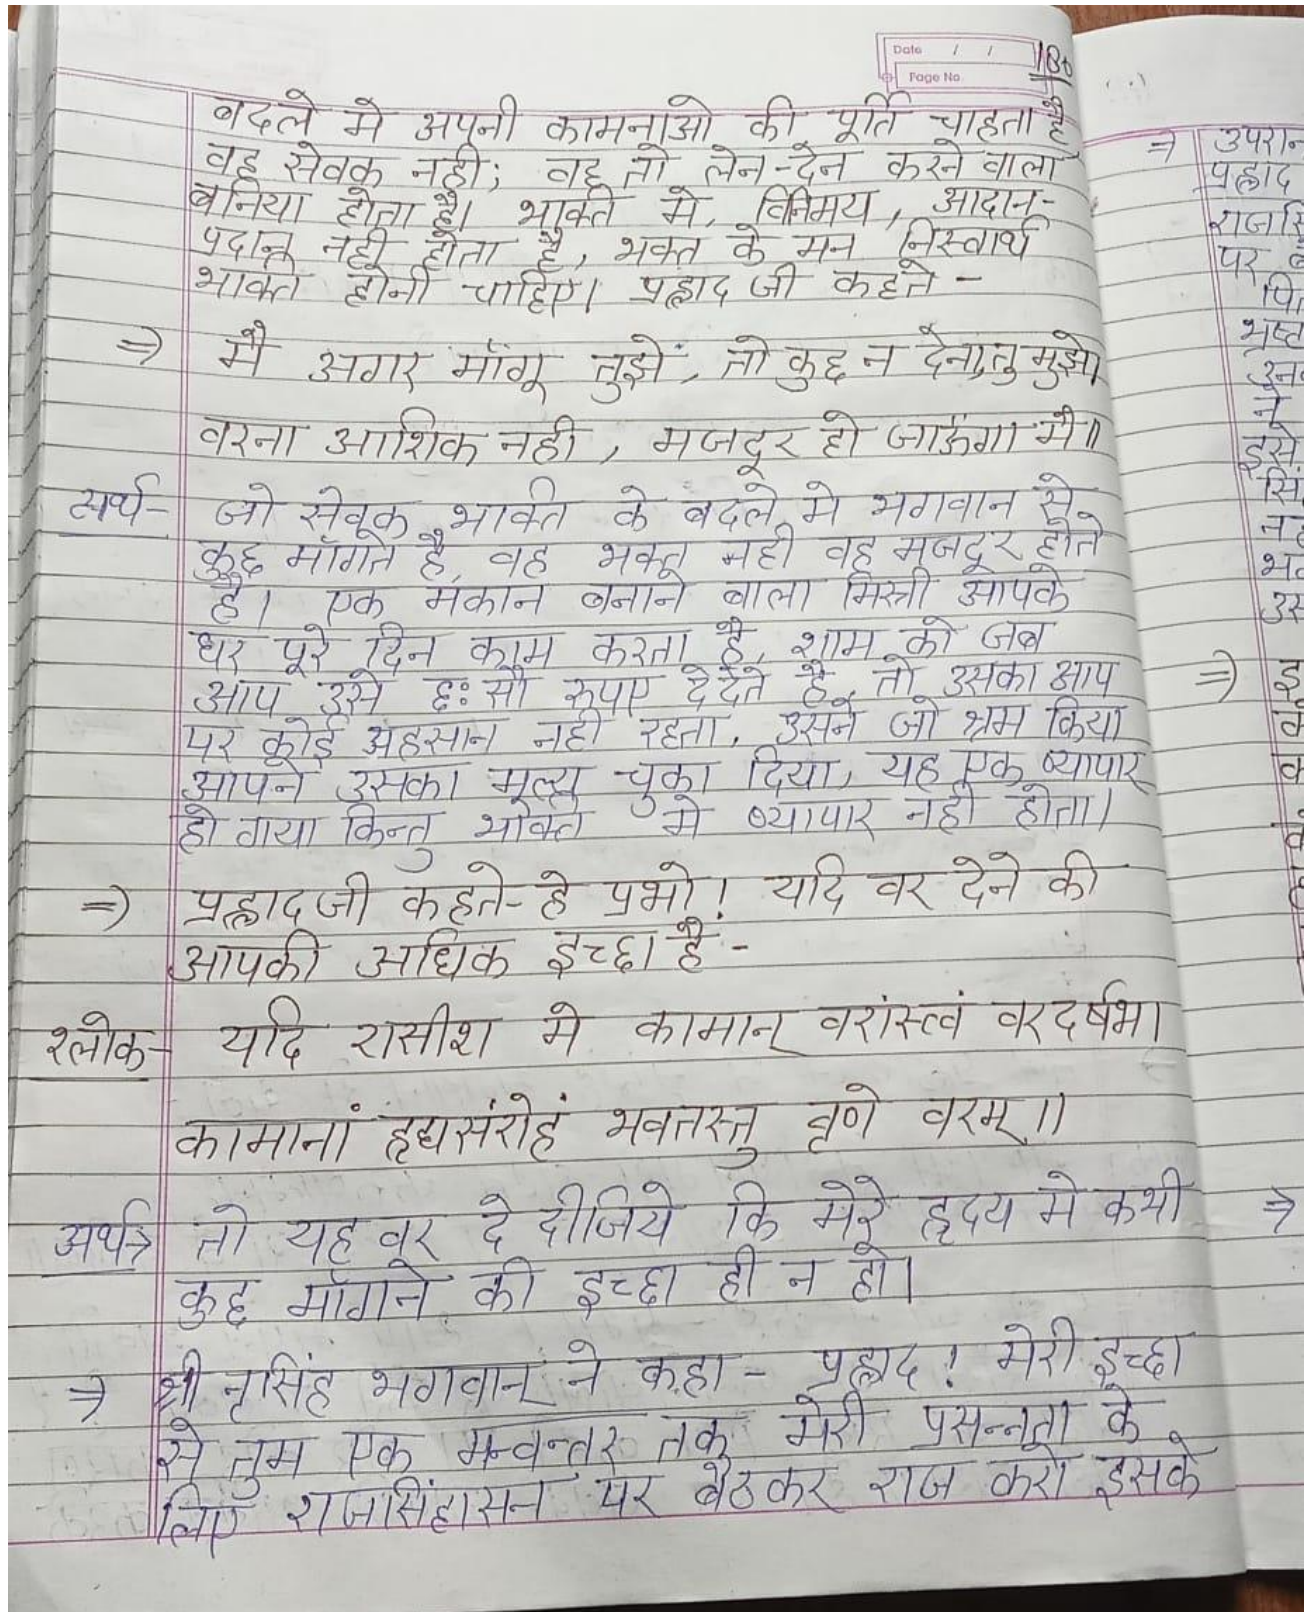 Date / /
Page No. 186
बदले मे अपनी कामनाओ की पूर्ति चाहता है
वह सेवक नही; वह तो लेन-देन करने वाला
बनिया होता है। भक्ति मे, विनिमय, आदान-
पदान नही होता है, भक्त के मन निस्वार्थ
भक्ति होनी चाहिए। प्रह्लाद जी कहते -
⇒ मै अगर माँगू तुझे, तो कुछ न देना, तु मुझे।
वरना आशिक नही, मजदूर हो जाऊंगा मै॥
अर्थ- जो सेवक भक्ति के बदले मे भगवान से
कुछ माँगते है, वह भक्त नही वह मजदूर होते
है। एक मकान बनाने बाला मिस्त्री आपके
घर पूरे दिन काम करता है, शाम को जब
आप उसे छः सौ रुपए देदेते है, तो उसका आप
पर कोई अहसान नही रहता, उसने जो श्रम किया
आपने उसका मूल्य चुका दिया, यह एक व्यापार
हो गया किन्तु भक्ति मे व्यापार नही होता।
⇒ प्रह्लाद जी कहते- हे प्रभो! यदि वर देने की
आपकी अधिक इच्छा है -
श्लोक- यदि रासीश मे कामान् वरांस्त्वं वरदर्षभ।
कामानां हृद्यसंरोहं भवतस्तु वृणे वरम्॥
अर्थ→ तो यह वर दे दीजिये कि मेरे हृदय मे कभी
कुछ माँगने की इच्छा ही न हो।
⇒ श्री नृसिंह भगवान् ने कहा - प्रह्लाद! मेरी इच्छा
से तुम एक मन्वन्तर तक मेरी प्रसन्नता के
लिए राजसिंहासन पर बैठकर राज करो इसके
⇒ उपरान
प्रह्लाद
पर
इसे
⇒
⇒